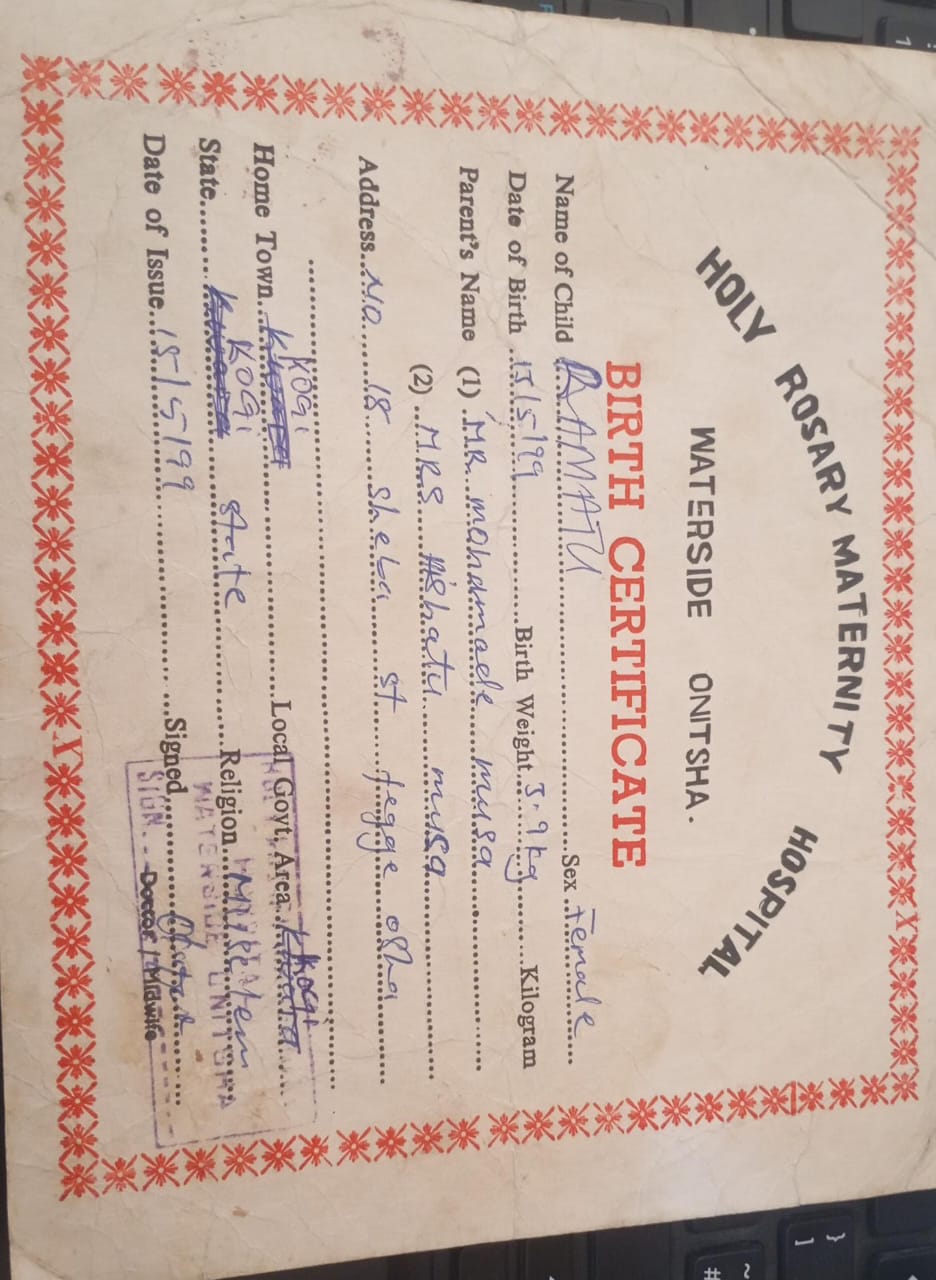 HOLY ROSARY MATERNITY HOSPITAL
WATERSIDE ONITSHA.
BIRTH CERTIFICATE
Name of Child RAAMATU Sex Female
Date of Birth 13/5/99 Birth Weight 3.9kg Kilogram
Parent's Name (1) MR. mohammade musa
(2) MRS Aishatu musa
Address No 18 Sheba st fegge osha
Home Town Kogi Local Govt. Area Kogi
State Kogi state Religion
Date of Issue 15/5/99 Signed
WATERSIDE ONITSHA
SIGN. Doctor/Midwife